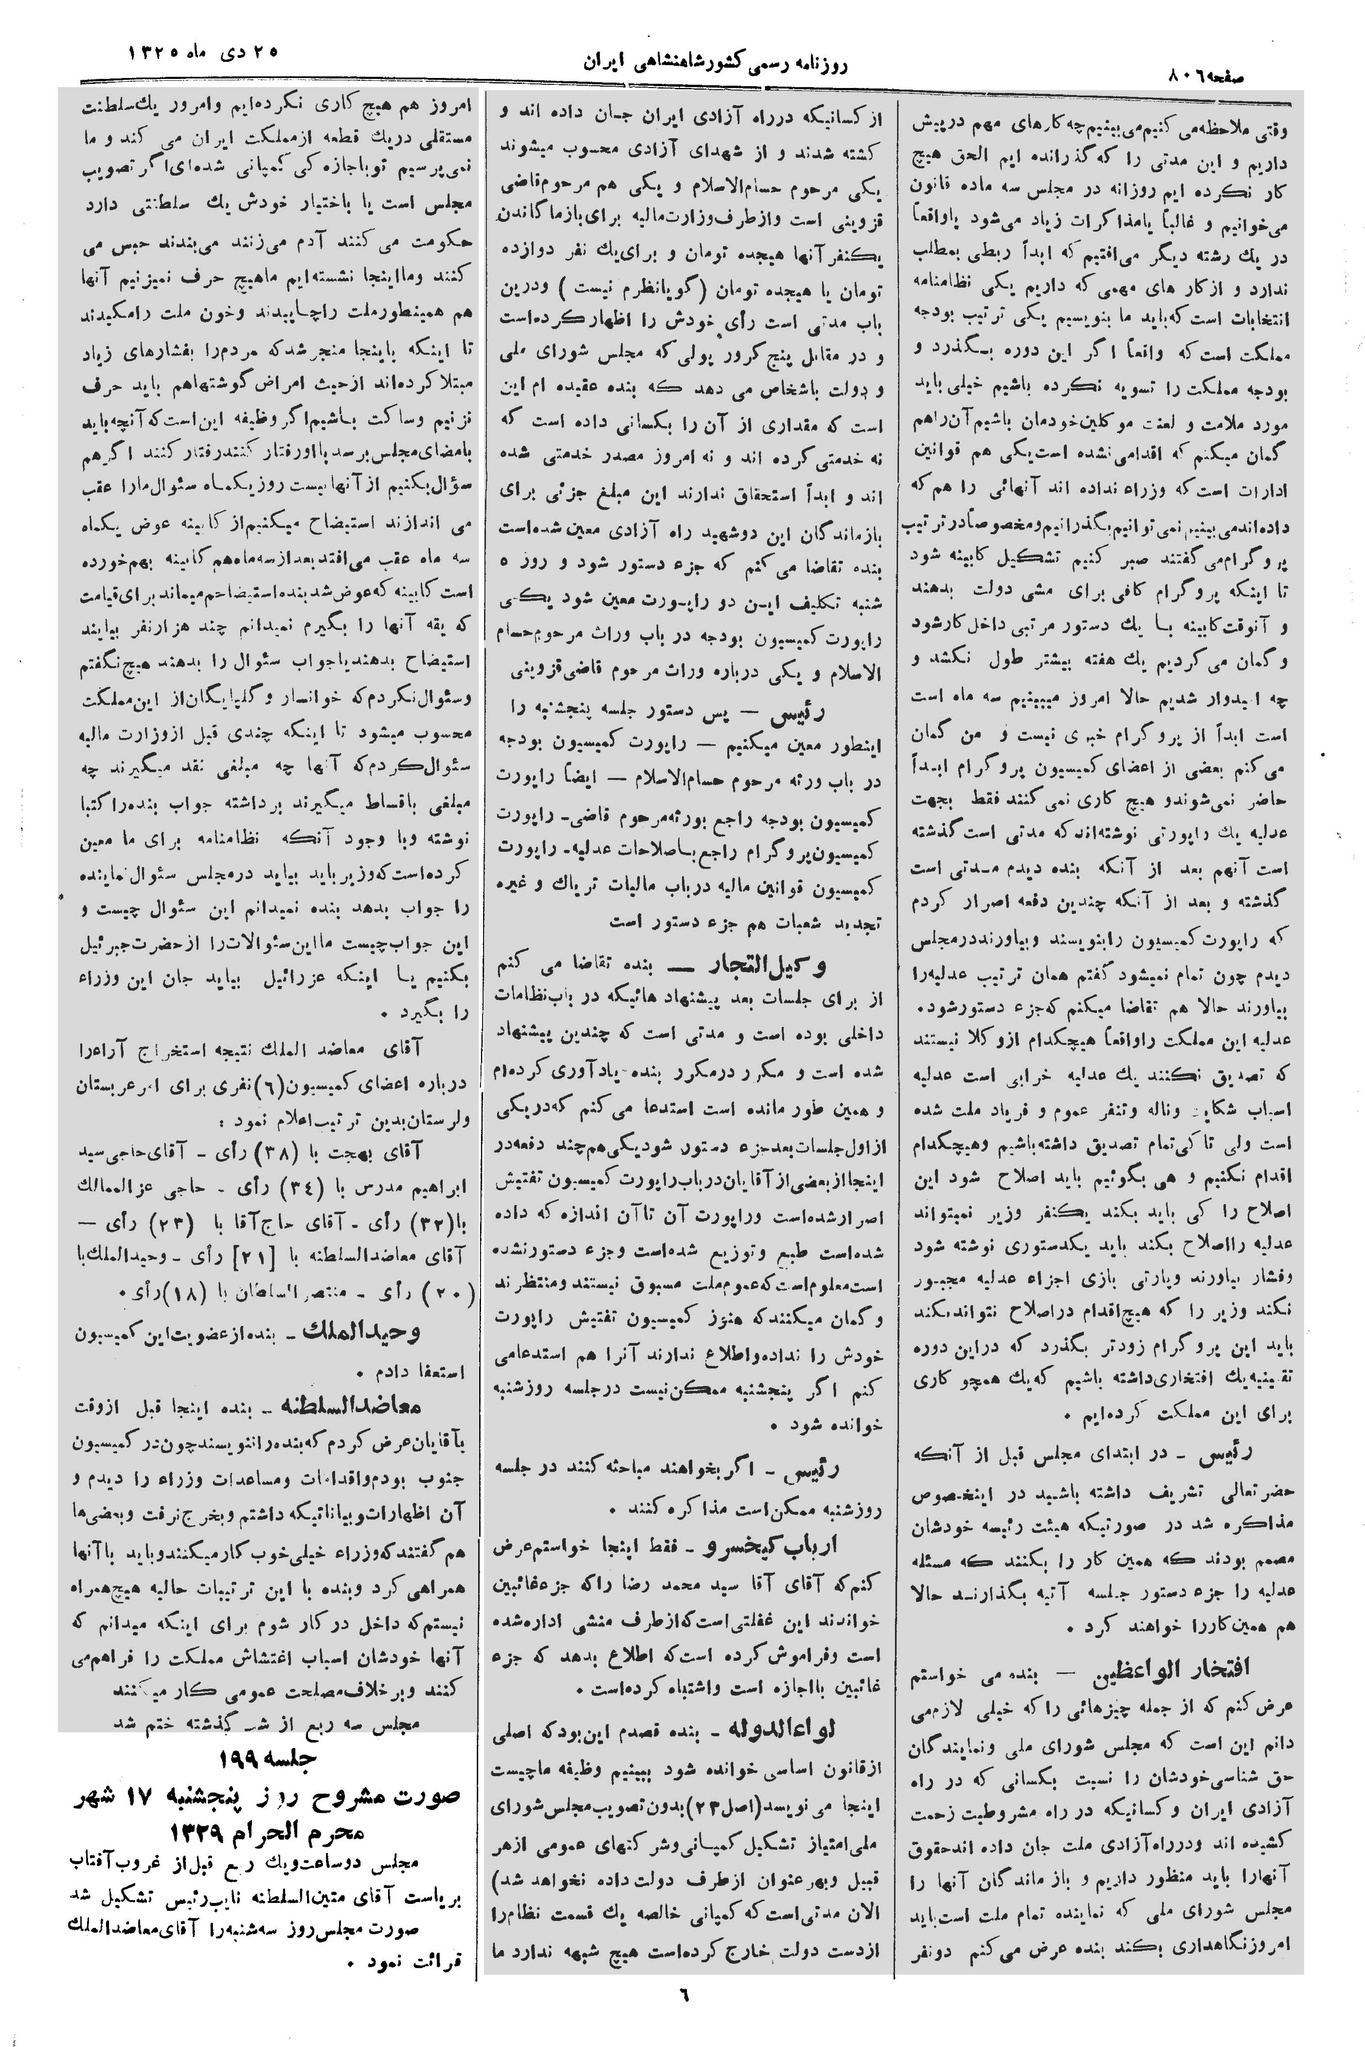 صفحه ۸۰۶
روزنامه رسمی کشور شاهنشاهی ایران
۲۵ دی ماه ۱۳۲۵
وقتی ملاحظه می کنیم می بینیم چه کار های مهم در پیش
داریم و این مدتی را که گذرانده ایم الحق هیچ
کار نکرده ایم روزانه در مجلس سه ماده قانون
می خوانیم و غالباً یا مذاکرات زیاد می شود یا واقعاً
در یك رشته دیگر می افتیم که ابداً ربطی بمطلب
ندارد و از کار های مهمی که داریم یکی نظامنامه
انتخابات است که باید ما بنویسیم یکی ترتیب بودجه
مملکت است که واقعاً اگر این دوره بگذرد و
بودجه مملکت را تسویه نکرده باشیم خیلی باید
مورد ملامت و لعنت موکلین خودمان باشیم آن را هم
گمان میکنم که اقدامی نشده است یکی هم قوانین
ادارات است که وزراء نداده اند آنهائی را هم که
داده اند می بینیم نمی توانیم بگذرانیم و مخصوصاً در ترتیب
پروگرام می گفتند صبر کنیم تشکیل کابینه شود
تا اینکه پروگرام کافی برای مشی دولت بدهند
و آنوقت کابینه با یك دستور مرتبی داخل کار شود
و گمان می کردیم یك هفته بیشتر طول نکشد و
چه امیدوار شدیم حالا امروز میبینیم سه ماه است
است ابداً از پروگرام خبری نیست و من گمان
می کنم بعضی از اعضای کمیسیون پروگرام ابداً
حاضر نمی شوند و هیچ کاری نمی کنند فقط بجهت
عدلیه یك راپورتی نوشته اند که مدتی است گذشته
است آنهم بعد از آنکه بنده دیدم مدتی است
گذشته و بعد از آنکه چندین دفعه اصرار کردم
که راپورت کمیسیون را بنویسند و بیاورند در مجلس
دیدم چون تمام نمیشود گفتم همان ترتیب عدلیه را
بیاورند حالا هم تقاضا میکنم که جزء دستور شود.
عدلیه این مملکت را واقعاً هیچکدام از وکلا نیستند
که تصدیق نکنند یك عدلیه خرابی است عدلیه
اسباب شکایت و ناله و تنفر عموم و فریاد ملت شده
است ولی تا کی تمام تصدیق داشته باشیم و هیچکدام
اقدام نکنیم و هی بگوئیم باید اصلاح شود این
اصلاح را کی باید بکند یکنفر وزیر نمیتواند
عدلیه را اصلاح بکند باید یکدستوری نوشته شود
و فشار بیاورند و پارتی بازی اجزاء عدلیه مجبور
نکند وزیر را که هیچ اقدام در اصلاح نتواند بکند
باید این پروگرام زودتر بگذرد که در این دوره
تقنینیه یك افتخاری داشته باشیم که یك همچو کاری
برای این مملکت کرده ایم .
رئیس - در ابتدای مجلس قبل از آنکه
حضرتعالی تشریف داشته باشید در اینخصوص
مذاکره شد در صورتیکه هیئت رئیسه خودشان
مصمم بودند که همین کار را بکنند که مسئله
عدلیه را جزء دستور جلسه آتیه بگذارند حالا
هم همین کار را خواهند کرد .
افتخار الواعظین — بنده می خواستم
عرض کنم که از جمله چیزهائی را که خیلی لازم می
دانم این است که مجلس شورای ملی و نمایندگان
حق شناسی خودشان را نسبت بکسانی که در راه
آزادی ایران و کسانیکه در راه مشروطیت زحمت
کشیده اند و در راه آزادی ملت جان داده اند حقوق
آنها را باید منظور داریم و باز ماندگان آنها را
مجلس شورای ملی که نماینده تمام ملت است باید
امروز نگاهداری بکند بنده عرض می کنم دو نفر
از کسانیکه در راه آزادی ایران جان داده اند و
کشته شدند و از شهدای آزادی محسوب میشوند
یکی مرحوم حسام الاسلام و یکی هم مرحوم قاضی
قزوینی است و از طرف وزارت مالیه برای بازماگاندن
یکنفر آنها هیجده تومان و برای یك نفر دوازده
تومان یا هیجده تومان (گویا نظرم نیست ) و درین
باب مدتی است رأی خودش را اظهار کرده است
و در مقابل پنج کرور پولی که مجلس شورای ملی
و دولت باشخاص می دهد که بنده عقیده ام این
است که مقداری از آن را بکسانی داده است که
نه خدمتی کرده اند و نه امروز مصدر خدمتی شده
اند و ابداً استحقاق ندارند این مبلغ جزئی برای
بازماندگان این دو شهید راه آزادی معین شده است
بنده تقاضا می کنم که جزء دستور شود و روز ۵
شنبه تکلیف این دو راپورت معین شود یکی
راپورت کمیسیون بودجه در باب وراث مرحوم حسام
الاسلام و یکی درباره وراث مرحوم قاضی قزوینی
رئیس - پس دستور جلسه پنجشنبه را
اینطور معین میکنیم — راپورت کمیسیون بودجه
در باب ورثه مرحوم حسام الاسلام — ایضاً راپورت
کمیسیون بودجه راجع بورثه مرحوم قاضی - راپورت
کمیسیون پروگرام راجع باصلاحات عدلیه - راپورت
کمیسیون قوانین مالیه در باب مالیات تریاك و غیره
تجدید شعبات هم جزء دستور است
وکیل التجار — بنده تقاضا می کنم
از برای جلسات بعد پیشنهاد هائیکه در باب نظامات
داخلی بوده است و مدتی است که چندین پیشنهاد
شده است و مکرر در مکرر بنده یادآوری کرده ام
و همین طور مانده است استدعا می کنم که در یکی
از اول جلسات بعد جزء دستور شود یکی هم چند دفعه در
اینجا از بعضی از آقایان در باب راپورت کمیسیون تفتیش
اصرار شده است و راپورت آن تا آن اندازه که داده
شده است طبع و توزیع شده است و جزء دستور نشده
است معلوم است که عموم ملت مسبوق نیستند و منتظرند
و گمان میکنند که هنوز کمیسیون تفتیش راپورت
خودش را نداده و اطلاع ندارند آنرا هم استدعا می
کنم اگر پنجشنبه ممکن نیست در جلسه روز شنبه
خوانده شود .
رئیس - اگر بخواهند مباحثه کنند در جلسه
روز شنبه ممکن است مذاکره کنند .
ارباب کیخسرو - فقط اینجا خواستم عرض
کنم که آقای آقا سید محمد رضا را که جزء غائبین
خواندند این غفلتی است که از طرف منشی اداره شده
است و فراموش کرده است که اطلاع بدهد که جزء
غائبین با اجازه است و اشتباه کرده است.
لواء الدوله - بنده قصدم این بود که اصلی
از قانون اساسی خوانده شود ببینیم وظیفه ما چیست
اینجا می نویسد (اصل ۲۳) بدون تصویب مجلس شورای
ملی امتیاز تشکیل کمپانی و شرکتهای عمومی از هر
قبیل و بهر عنوان از طرف دولت داده نخواهد شد)
الان مدتی است که کمپانی خالصه یك قسمت نظام را
از دست دولت خارج کرده است هیچ شبهه ندارد ما
امروز هم هیچ کاری نکرده ایم و امروز یك سلطنت
مستقلی در یك قطعه از مملکت ایران می کند و ما
نمی پرسیم تو باجازه کی کمپانی شده ای اگر تصویب
مجلس است یا باختیار خودش یك سلطنتی دارد
حکومت می کنند آدم می زنند می بندند حبس می
کنند و ما اینجا نشسته ایم ما هیچ حرف نمیزنیم آنها
هم همینطور ملت را چاپیدند و خون ملت را مکیدند
تا اینکه باینجا منجر شد که مردم را بفشارهای زیاد
مبتلا کرده اند از حیث امراض گوشتها هم باید حرف
نزنیم و ساکت باشیم اگر وظیفه این است که آنچه باید
بامضای مجلس برسد با او رفتار کنند رفتار کنند اگر هم
سؤال بکنیم از آنها بیست روز یکماه سئوال ما را عقب
می اندازند استیضاح میکنیم از کابینه عوض یکماه
سه ماه عقب می افتد بعد از سه ماه هم کابینه بهم خورده
است کابینه که عوض شد بنده استیضاحم میماند برای قیامت
که یقه آنها را بگیرم نمیدانم چند هزار نفر بیایند
استیضاح بدهند یا جواب سئوال را بدهند هیچ نگفتم
و سئوال نکردم که خوانسار و گلپایگان از این مملکت
محسوب میشود تا اینکه چندی قبل از وزارت مالیه
سئوال کردم که آنها چه مبلغی نقد میگیرند چه
مبلغی باقساط میگیرند برداشته جواب بنده را کتبا
نوشته و با وجود آنکه نظامنامه برای ما معین
کرده است که وزیر باید بیاید در مجلس سئوال نماینده
را جواب بدهد بنده نمیدانم این سئوال چیست و
این جواب چیست ما این سئوالات را از حضرت جبرئیل
بکنیم یا اینکه عزرائیل بیاید جان این وزراء
را بگیرد .
آقای معاضد الملك نتیجه استخراج آراء را
درباره اعضای کمیسیون (۶) نفری برای امر عربستان
و لرستان بدین ترتیب اعلام نمود :
آقای بهجت با (۳۸) رأی - آقای حاجی سید
ابراهیم مدرس با (۳۴) رأی - حاجی عز الممالك
با (۳۲) رأی - آقای حاج آقا با (۲۳) رأی —
آقای معاضد السلطنه با [۲۱] رأی - وحید الملك با
(۲۰) رأی - منتصر السلطان با (۱۸) رأی .
وحید الملك - بنده از عضویت این کمیسیون
استعفا دادم .
معاضد السلطنه - بنده اینجا قبل از وقت
بآقایان عرض کردم که بنده را ننویسند چون در کمیسیون
جنوب بودم و اقدامات و مساعدات وزراء را دیدم و
آن اظهارات و بیاناتیکه داشتم و بخرج نرفت و بعضی ها
هم گفتند که وزراء خیلی خوب کار میکنند و باید با آنها
همراهی کرد و بنده با این ترتیبات حالیه هیچ همراه
نیستم که داخل در کار شوم برای اینکه میدانم که
آنها خودشان اسباب اغتشاش مملکت را فراهم می
کنند و بر خلاف مصلحت عمومی کار میکنند
مجلس سه ربع از شب گذشته ختم شد
جلسه ۱۹۹
صورت مشروح روز پنجشنبه ۱۷ شهر
محرم الحرام ۱۳۲۹
مجلس دو ساعت و یك ربع قبل از غروب آفتاب
بریاست آقای متین السلطنه نایب رئیس تشکیل شد
صورت مجلس روز سه شنبه را آقای معاضد الملك
قرائت نمود .
۶